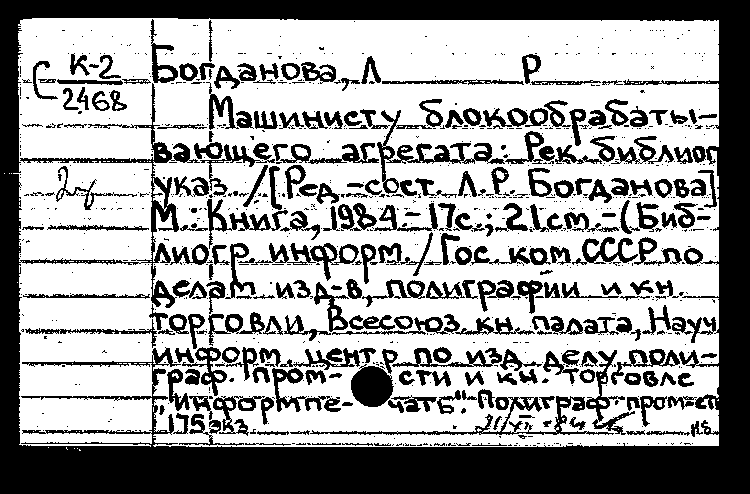 К-2
2468
Богданова, Л Р
Машинисту блокообрабаты-
вающего агрегата: Рек. библиог
указ. /[Ред.-сост. Л.Р. Богданова]
М.: Книга, 1984.- 17с.; 21см.-(Биб-
лиогр. информ. / Гос. ком. СССР по
делам изд-в, полиграфии и кн.
торговли, Всесоюз. кн. палата, Науч
информ. центр по изд. делу, поли-
граф. пром-сти и кн. торговле
"Информпе-чать". Полиграф. пром-сть
175 экз.